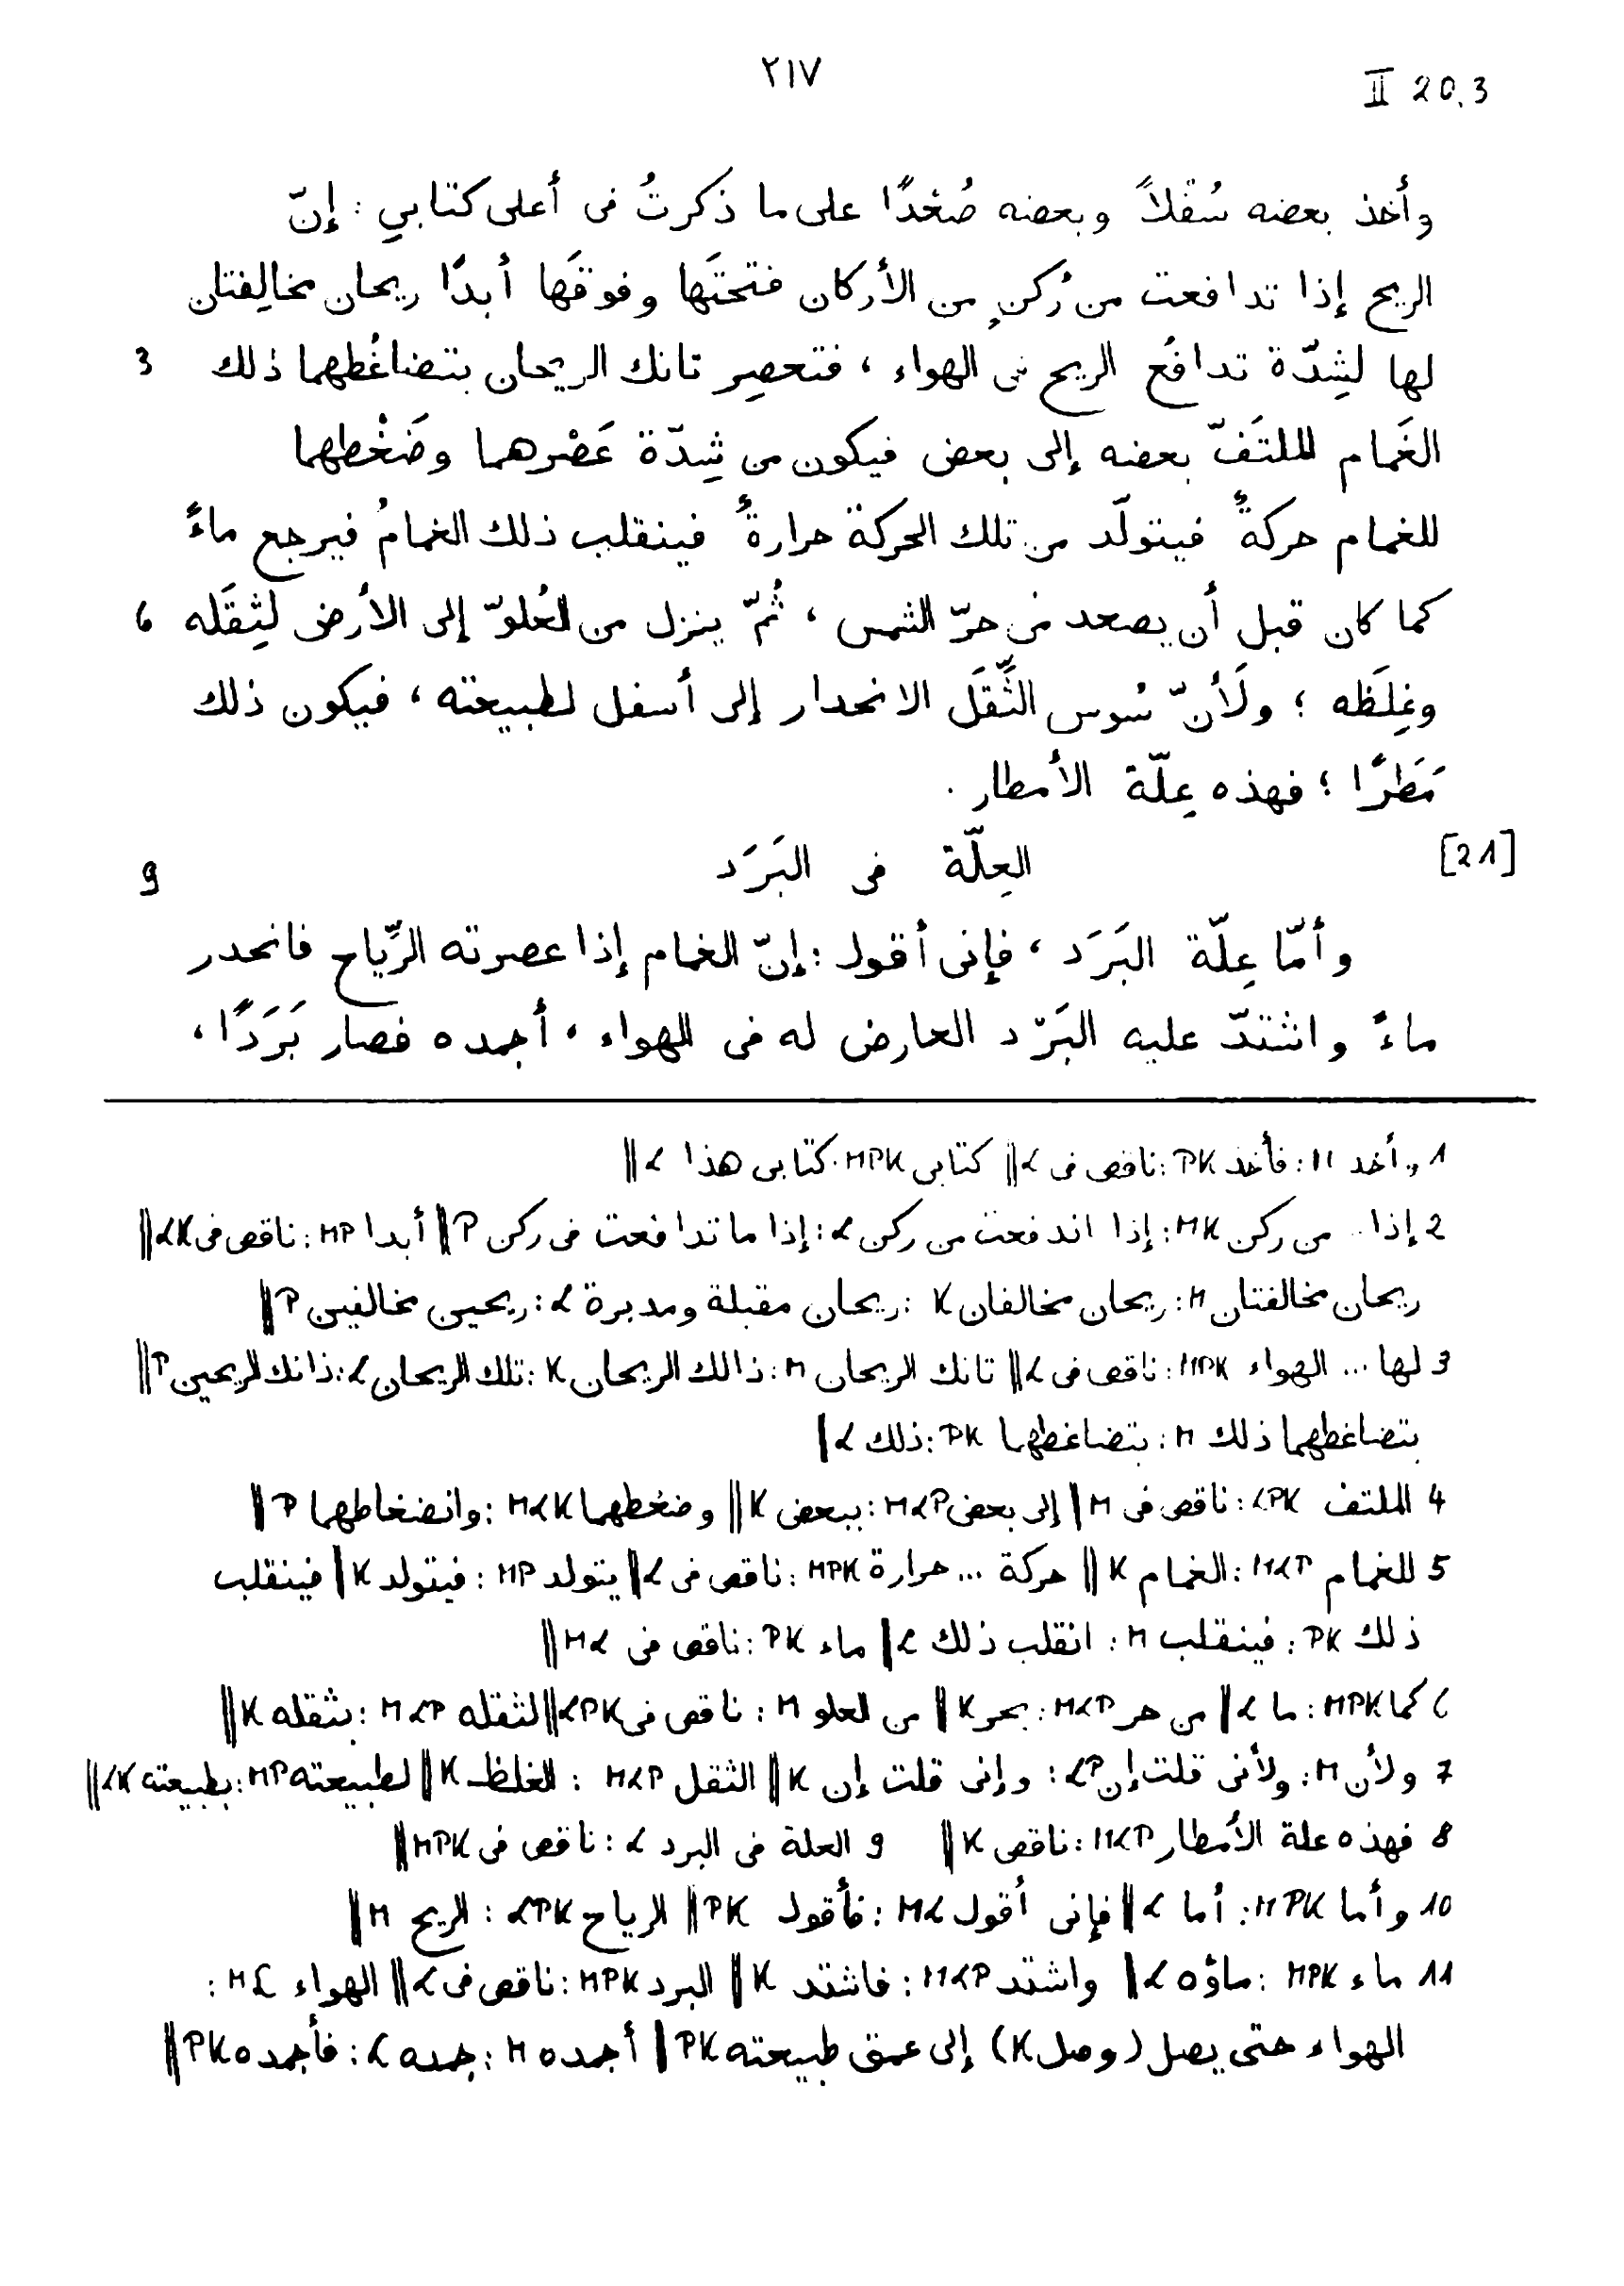 ٢١٧
II 20.3
وأخذ بعضه سُفْلاً وبعضه صُعْدًا على ما ذكرتُ فى أعلى كتابي : إنّ
الريح إذا تدافعت من رُكنٍ من الأركان فتحتَها وفوقَها أبدًا ريحان مخالِفتان
لها لشِدّة تدافُع الريح فى الهواء ، فتعصِر تانك الريحان بتضاغُطهما ذلك 3
الغَمام الملتَفّ بعضه إلى بعض فيكون من شِدّة عَصْرهما وضَغْطهما
للغمام حركةٌ فيتولّد من تلك الحركة حرارةٌ فينقلب ذلك الغمامُ فيرجع ماءً
كما كان قبل أن يصعد من حرّ الشمس ، ثُمّ ينزل من العُلوّ إلى الأرض لثِقَله 6
وغِلَظه ؛ ولَأنّ سُوس الثِّقَل الانحدار إلى أسفل لطبيعته ، فيكون ذلك
مَطَرًا ؛ فهذه عِلّة الأمطار .
[21] العِلّة فى البَرَد 9
وأمّا عِلّة البَرَد ، فإنى أقول : إنّ الغمام إذا عصرته الرِّياح فانحدر
ماءً واشتدّ عليه البَرْد العارض له فى الهواء ، أجمده فصار بَرَدًا ،
1 وأخذ M : فأخذ PK : ناقص فى L ‖ كتابى MPK : كتابى هذا L ‖
2 إذا .. من ركن MK : إذا اندفعت من ركن L : إذا ما تدافعت فى ركن P ‖ أبدا MP : ناقص فى LK ‖
ريحان مخالفتان M : ريحان مخالفان K : ريحان مقبلة ومدبرة L : ريحين مخالفين P ‖
3 لها ... الهواء MPK : ناقص فى L ‖ تانك الريحان M : ذالك الريحان K : تلك الريحان L : ذانك الريحين P ‖
بتضاغطهما ذلك M : بتضاغطهما PK : ذلك L ‖
4 الملتف LPK : ناقص فى M ‖ إلى بعض MLP : ببعض K ‖ وضغطهما MLK : وانضغاطهما P ‖
5 للغمام MLP : الغمام K ‖ حركة ... حرارة MPK : ناقص فى L ‖ يتولد MP : فيتولد K ‖ فينقلب
ذلك PK : فينقلب M : انقلب ذلك L ‖ ماء PK : ناقص فى ML ‖
6 كما MPK : ما L ‖ من حر MLP : بحر K ‖ من العلو M : ناقص فى LPK ‖ لثقله MLP : بثقله K ‖
7 ولأن M : ولأنى قلت إن LP : وإنى قلت إن K ‖ الثقل MLP : الغلظ K ‖ لطبيعته MP : بطبيعته LK ‖
8 فهذه علة الأمطار MLP : ناقص K ‖ 9 العلة فى البرد L : ناقص فى MPK ‖
10 وأما MPK : أما L ‖ فإنى أقول ML : فأقول PK ‖ الرياح LPK : الريح M ‖
11 ماء MPK : ماؤه L ‖ واشتد MLP : فاشتد K ‖ البرد MPK : ناقص فى L ‖ الهواء ML :
الهواء حتى يصل (وصل K) إلى عمق طبيعته PK ‖ أجمده M : جمده L : فأجمده PK ‖